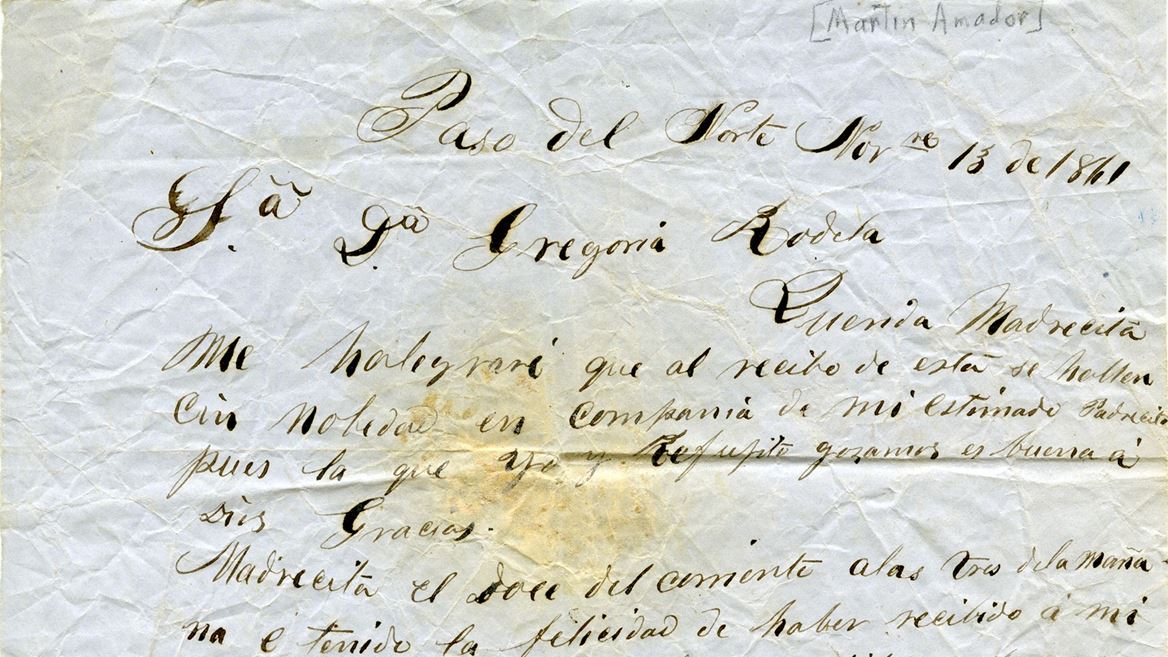 [Martin Amador]
Paso del Norte Nov.re 13 de 1861
S.ã D.ã Gregoria Rodela
Querida Madrecita
Me halegraré que al recibo de esta se hallen
cin nobedad en compania de mi estimado Padrecito
pues la que yo y Refujito gosamos es buena á
Dios Gracias.
Madrecita el doce del corriente a las tres de la maña-
na e tenido la felicidad de haber recibido á mi